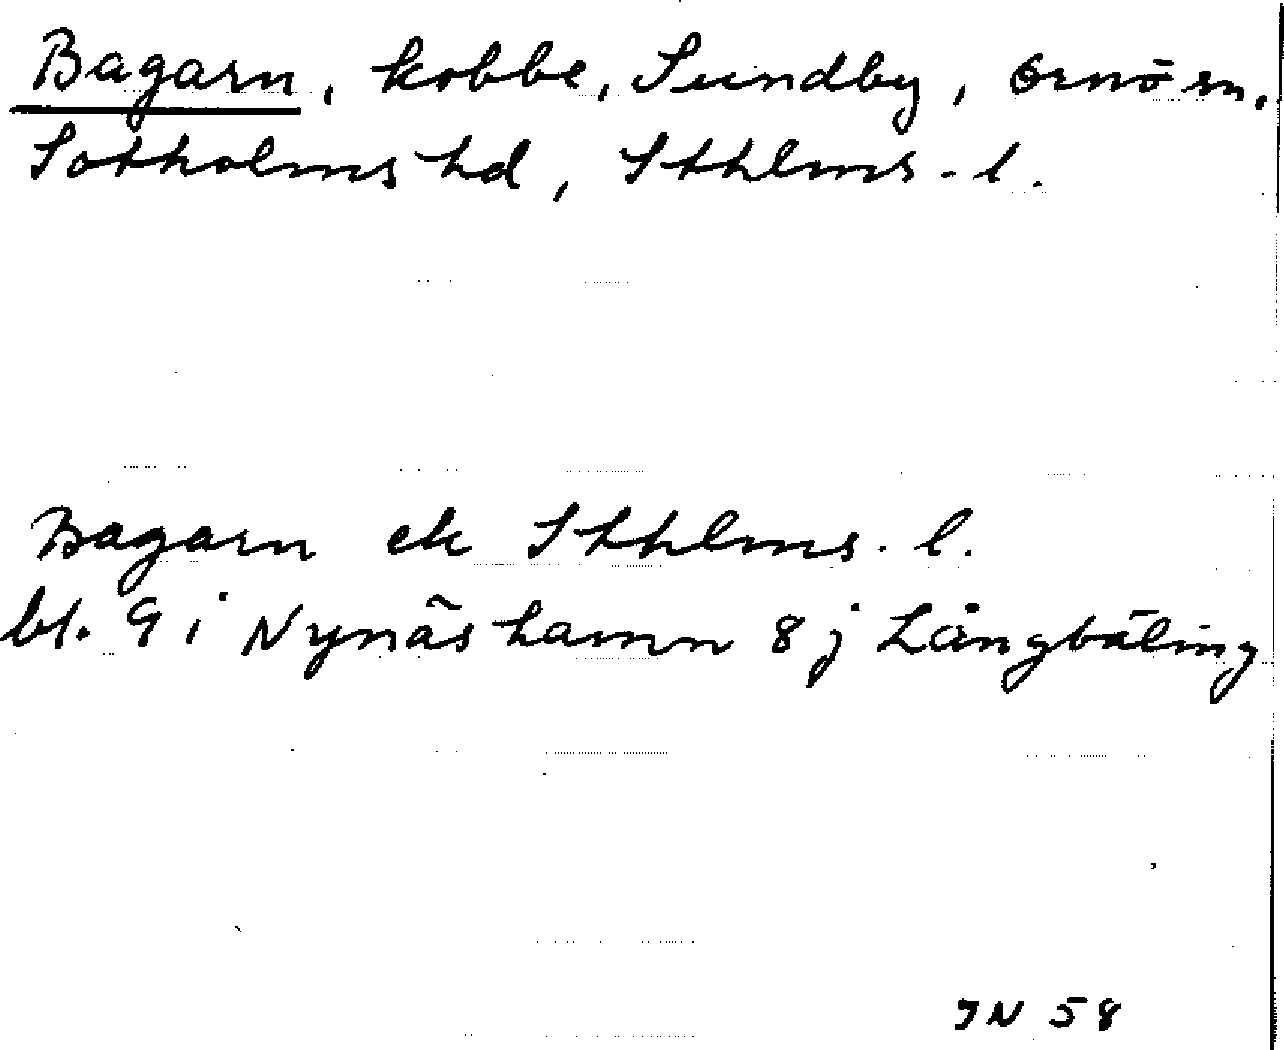 Bagarn, kobbe, Sundby, Ornö sn,
Sotholms hd, Sthlms. l.
Bagarn ek Sthlms. l.
bl. 9 i Nynäshamn 8 j Långbäling
JN 58